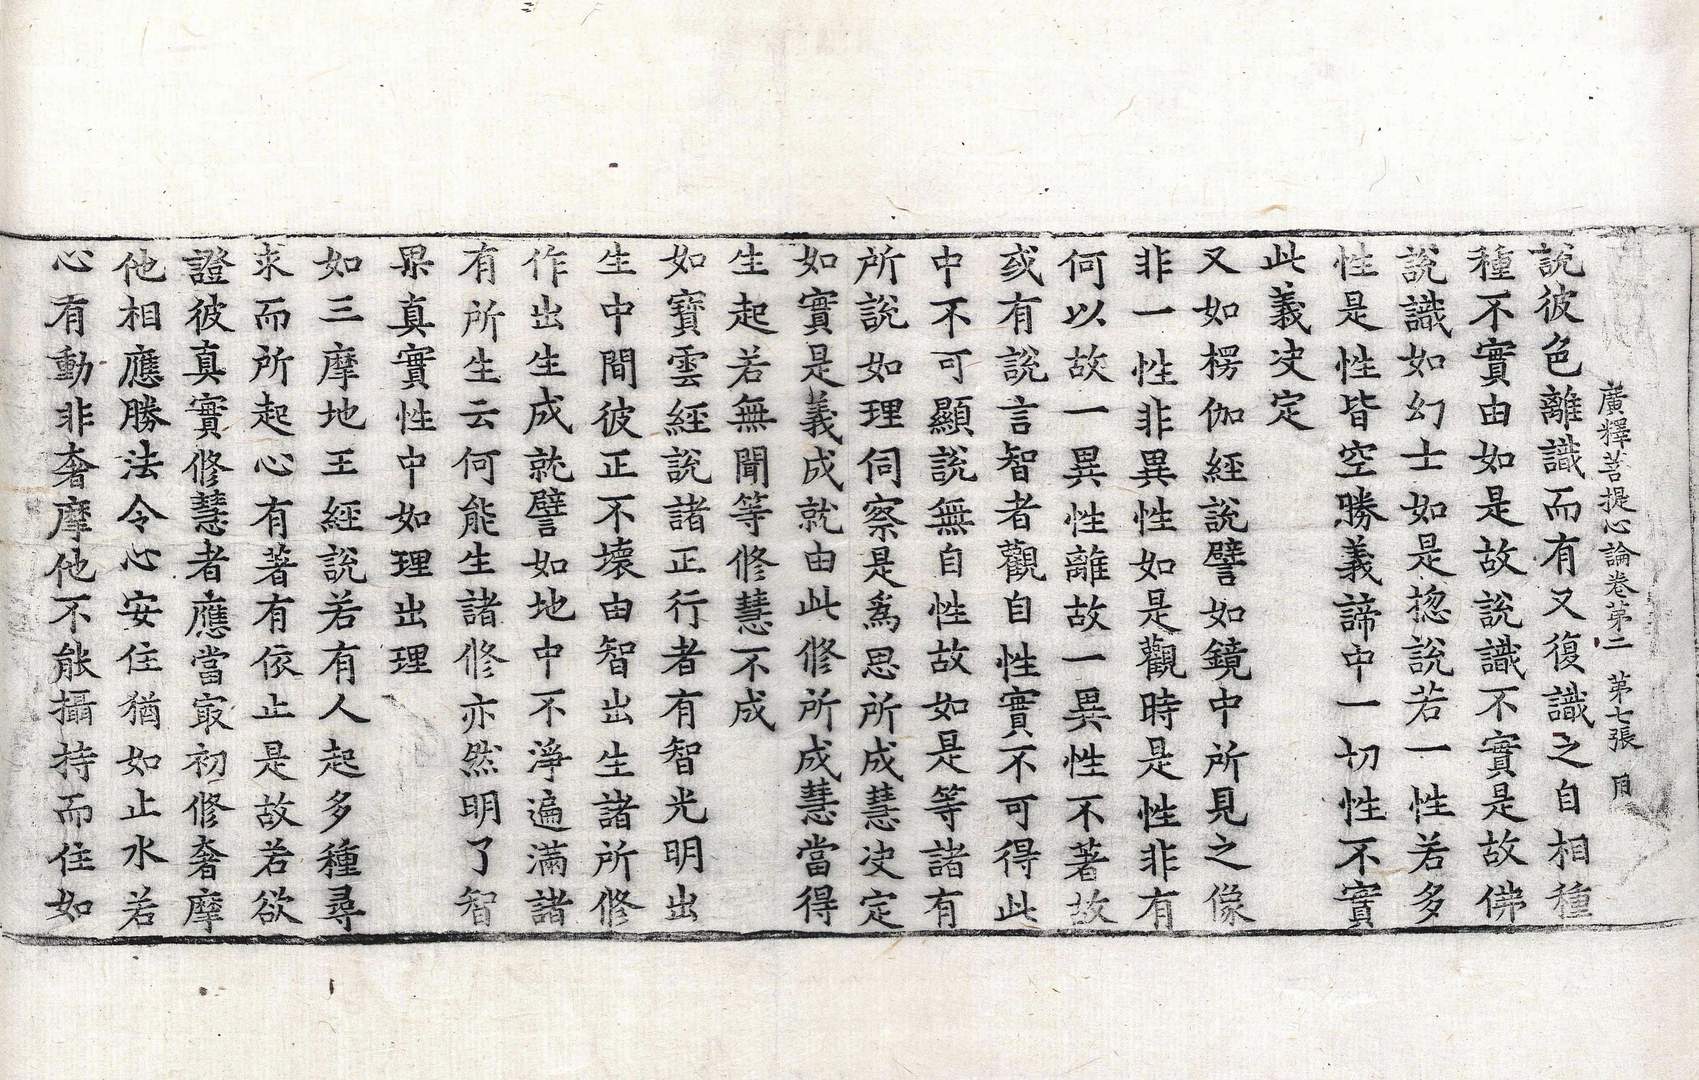 廣釋菩提心論卷第二 第七張 目
說彼色離識而有又復識之自相種
種不實由如是故說識不實是故佛
說識如幻士如是揔說若一性若多
性是性皆空勝義諦中一切性不實
此義决定
又如楞伽經說譬如鏡中所見之像
非一性非異性如是觀時是性非有
何以故一異性離故一異性不著故
或有說言智者觀自性實不可得此
中不可顯說無自性故如是等諸有
所說如理伺察是爲思所成慧决定
如實是義成就由此修所成慧當得
生起若無聞等修慧不成
如寶雲經說諸正行者有智光明出
生中間彼正不壞由智出生諸所修
作出生成就譬如地中不淨遍滿諸
有所生云何能生諸修亦然明了智
果真實性中如理出理
如三摩地王經說若有人起多種尋
求而所起心有著有依止是故若欲
證彼真實修慧者應當㝡初修奢摩
他相應勝法令心安住猶如止水若
心有動非奢摩他不能攝持而住如